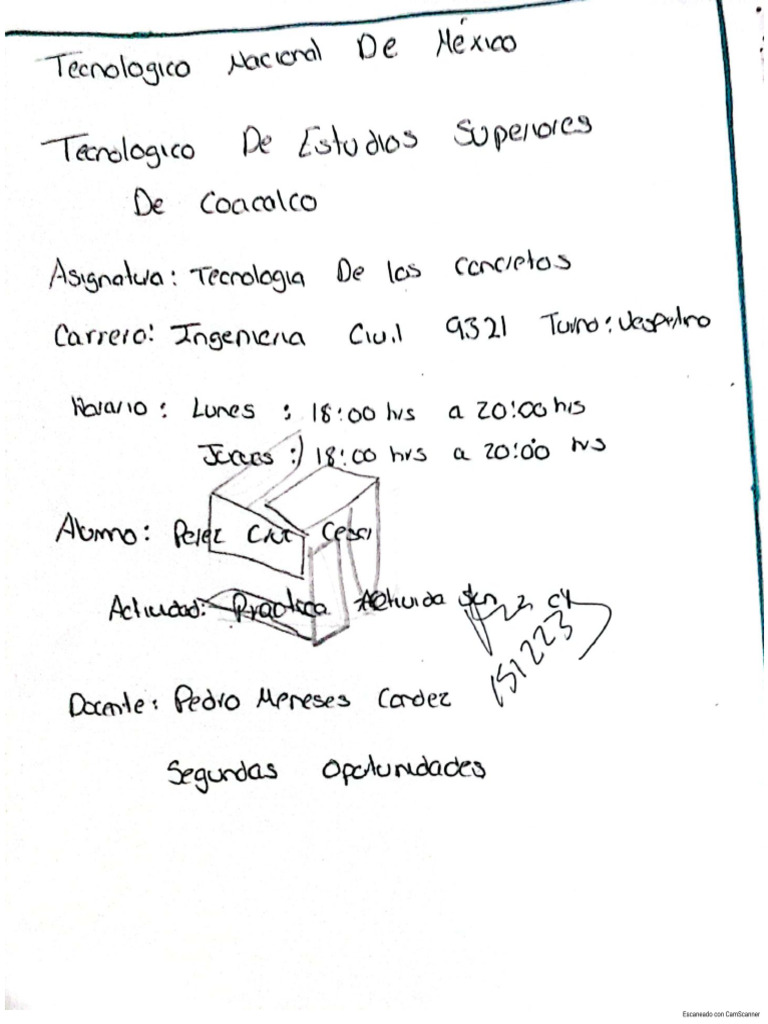 Tecnologico Nacional De México
Tecnologico De Estudios Superiores
De Coacalco
Asignatura: Tecnologia De los concretos
Carrera: Ingenieria Civil 9321 Turno: Vespertino
Horario: Lunes : 18:00 hrs a 20:00 hrs
Jueves : 18:00 hrs a 20:00 hrs
Alumno: Perez Cesar
Actividad: Practica
151223
Docente: Pedro Meneses Cordez
Segundas Oportunidades
Escaneado con CamScanner